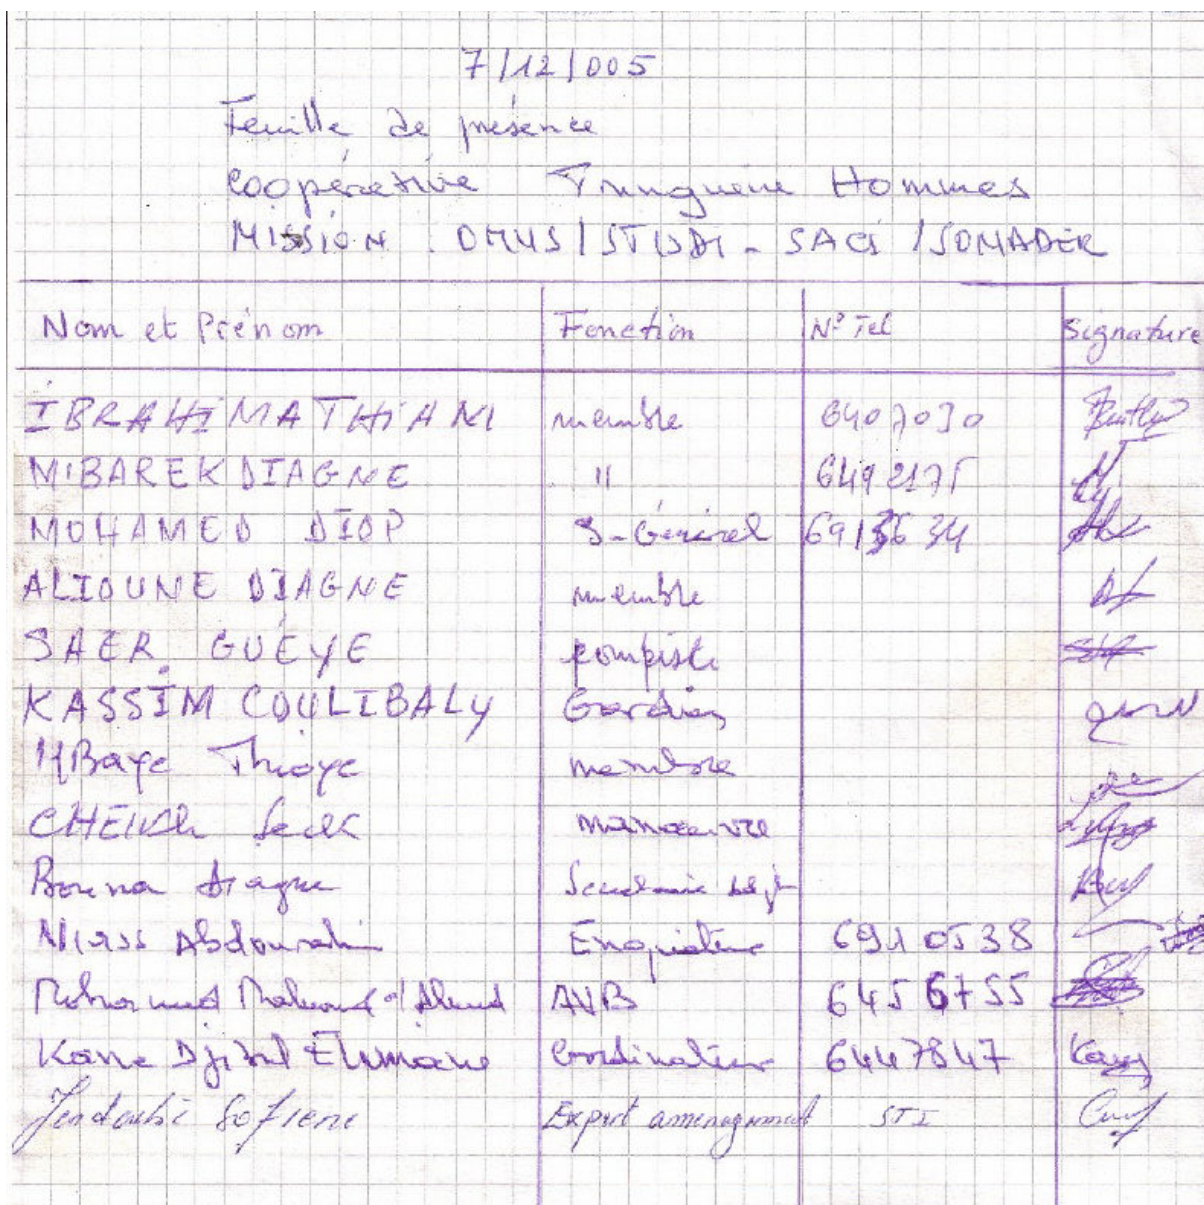 7/12/005
Feuille de présence
Coopérative Tounguène Hommes
MISSION : OMVS/STUDI-SACI/SONADER
Nom et Prénom Fonction N° Tel Signature
IBRAHIMA THIANI membre 6407030
MIBAREK DIAGNE " 6492175
MOHAMED DIOP S-Général 6913634
ALIOUNE DIAGNE membre
SAER GUÉYE pompiste
KASSIM COULIBALY Gardien
MBaye Thioye membre
CHEIKH Seck manoeuvre
Bouna Diagne Secrétaire
Niass Abdourahim Enquêteur 6910538
Mohamed AVB 6456755
Kane Djibril Elimane Coordinateur 6447847 Kane
Jendoubi Sofiene Expert amenagement STI